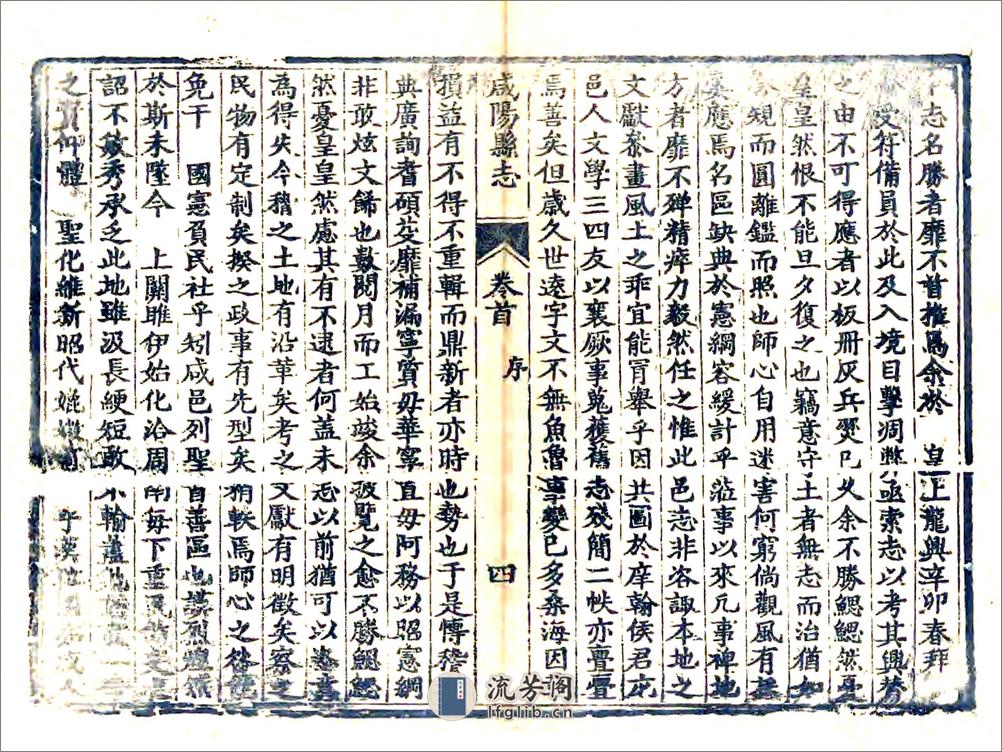 志名勝者靡不首推焉余於 皇上龍興辛卯春拜
受符備員於此及入境目擊凋弊亟索志以考其興替
之由不可得應者以板冊灰兵燹已久余不勝鰓然憂
皇皇然恨不能旦夕復之也竊意守土者無志而治猶
規而圓離鑑而照也師心自用迷害何窮倘觀風有
應焉名區缺典於憲綱容緩計乎蒞事以來凡事裨地
方者靡不殫精瘁力毅然任之惟此邑志非咨諏本地之
文獻參畫風土之乖宜能胥舉乎因共圖於庠翰侯君
邑人文學三四友以襄厥事蒐獲舊志殘簡二帙亦亹亹
焉善矣但歲久世遠字文不無魚魯事變已多桑海因
咸陽縣志 卷首 序 四
損益有不得不重輯而鼎新者亦時也勢也于是慱稽
典廣詢耆碩芟靡補漏寧質毋華寧直毋阿務以昭憲綱
非敢炫文餙也數閱月而工始竣余披覽之愈不勝鰓鰓
然憂皇皇然慮其有不逮者何蓋未志以前猶可以
為得失今稽之土地有沿革矣考之文獻有明徵矣察之
民物有定制矣揆之政事有先型矣稍軼焉師心之咎
免于 國憲負民社乎矧咸邑列聖首善區也謨烈煌然
於斯未墜今 上關雎伊始化洽周南每下重
詔不敏秀承乏此地雖汲長綆短敢不
之 仰體 聖化維新昭代